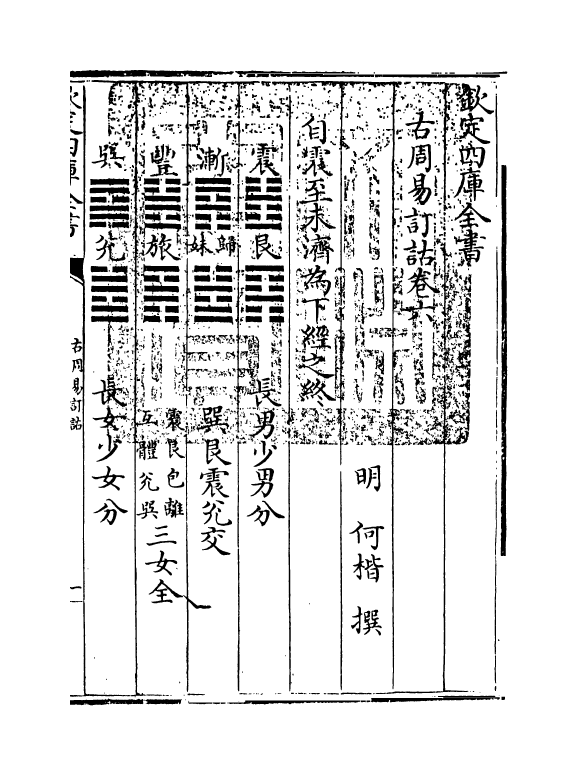 欽定四庫全書
古周易訂詁卷六
明 何楷 撰
自震至未濟為下經之終
震 艮 長男少男分
漸 歸妹 巽艮震兊交
豐 旅 震艮包離互體兊巽三女全
巽 兊 長女少女分
欽定四庫全書
古周易訂詁
一